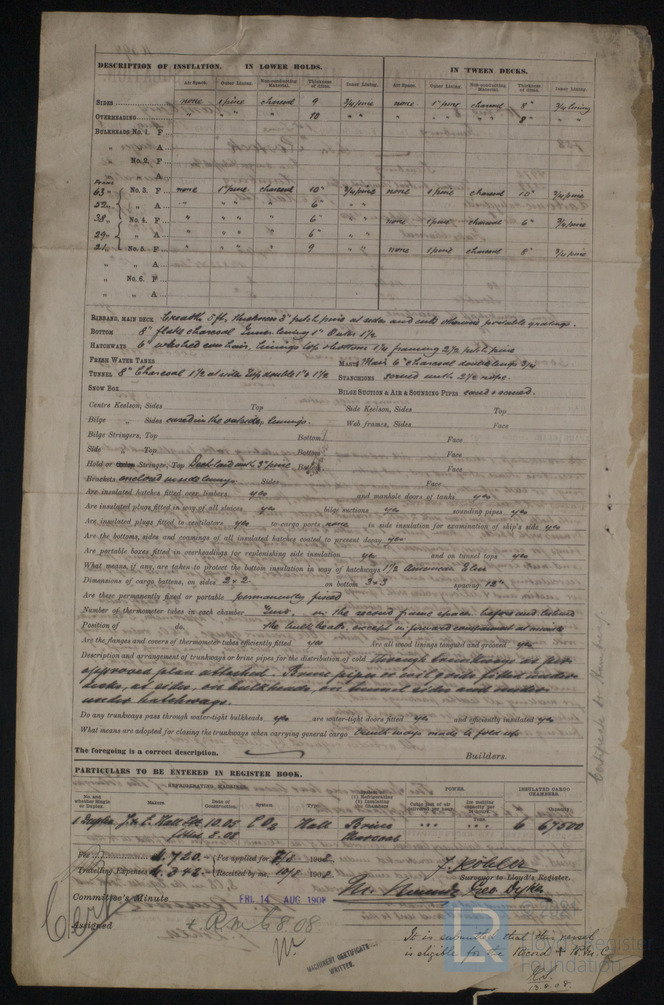 DESCRIPTION OF INSULATION. IN LOWER HOLDS. IN TWEEN DECKS.
Air Space. Outer Lining. Non-conducting Material. Thickness of ditto. Inner Lining. Air Space. Outer Lining. Non-conducting Material. Thickness of ditto. Inner Lining.
SIDES none 1 pine charcoal 9 3/4 pine none 1" pine charcoal 8" 3/4 lining
OVERHEADING " " " 10 " " " " " 8" " "
BULKHEADS No. 1. F
" " A
" No. 2. F
" " A
63 " No. 3. F none 1" pine charcoal 10" 3/4 pine none 1 pine charcoal 10" 3/4 pine
52 " " A " " " " 6" " "
38 " No. 4. F " " " " 6" " " none 1 pine charcoal 6" 3/4 pine
29 " " A " " " " 6" " "
21 " No. 5. F " " " " 9 " " none 1 pine charcoal 8" 3/4 pine
" " A
" No. 6. F
" " A
RIBBAND, MAIN DECK 3" pitch pine at sides and portable gratings.
BOTTOM 8" flake charcoal Inner lining 1" Outer 1 1/2
HATCHWAYS 6" cow hair, linings top & bottom 1 1/4 framing 2 1/2 pitch pine
FRESH WATER TANKS MASTS Main 6" charcoal double linings 3/4
TUNNEL 8" Charcoal 1 1/2 at side top double 1" & 1 1/2 STANCHIONS served with 2 1/2 rope.
SNOW BOX BILGE SUCTION & AIR & SOUNDING PIPES cased & served.
Centre Keelson, Sides Top Side Keelson, Sides Top
Bilge " Sides cased in the outside, linings. Web frames, Sides Face
Bilge Stringers, Top Bottom Face
Side " Top Bottom Face
Hold or Stringer, Top with 3" pine Face
Brackets enclosed in side linings. Sides Face
Are insulated hatches fitted over limbers yes and manhole doors of tanks yes
Are insulated plugs fitted in way of all sluices yes bilge suctions yes sounding pipes yes
Are insulated plugs fitted to ventilators yes to cargo ports none to side insulation for examination of ship's side yes
Are the bottoms, sides and coamings of all insulated hatches coated to prevent decay yes
Are portable boxes fitted in overheadings for replenishing side insulation yes and on tunnel tops yes
What means, if any, are taken to protect the bottom insulation in way of hatchways 1 1/2 American Elm
Dimensions of cargo battens, on sides 2 x 2 on bottom 3 x 3 spacing 12"
Are these permanently fixed or portable permanently fixed
Number of thermometer tubes in each chamber Four. in the second frame space before and behind
Position of do. the bulkheads except in forward compartment
Are the flanges and covers of thermometer tubes efficiently fitted yes Are all wood linings tongued and grooved yes
Description and arrangement of trunkways or brine pipes for the distribution of cold through trunkways as per
approved plan attached. Brine pipes or coil grids fitted under
decks, at sides, on bulkheads, on tunnel sides and under
under hatchways.
Do any trunkways pass through water-tight bulkheads yes are water-tight doors fitted yes and efficiently insulated yes
What means are adopted for closing the trunkways when carrying general cargo trunkways made to fold up
The foregoing is a correct description. Builders.
PARTICULARS TO BE ENTERED IN REGISTER BOOK.
REFRIGERATING MACHINES. POWER. INSULATED CARGO CHAMBERS.
No. and whether Single or Duplex. Makers Date of Construction. System. Type. (1) Refrigerating (2) Insulating the Chambers Ice melting capacity per 24 hours Capacity
1 Duplex J. & E. Hall Ltd. 10.05 CO2 Hall Brine 6 67500
fitted 2.08 Charcoal
Fee £720.- Fee applied for 1908
Travelling Expenses £342.- Received by me, 1908 J. Köhler
Surveyor to Lloyd's Register.
Committee's Minute FRI. 14 AUG 1908 Geo Dykes
Assigned + RMC 8.08
Cert
MACHINERY CERTIFICATE WRITTEN.
It is submitted that this vessel
is eligible for the Record + RMC
13.8.08.
Lloyd's Register
Foundation